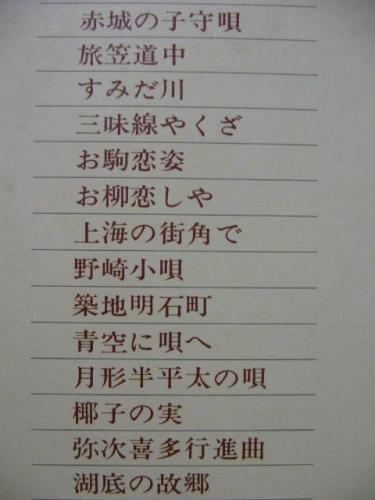 赤城の子守唄
旅笠道中
すみだ川
三味線やくざ
お駒恋姿
お柳恋しや
上海の街角で
野崎小唄
築地明石町
青空に唄へ
月形半平太の唄
椰子の実
弥次喜多行進曲
湖底の故郷